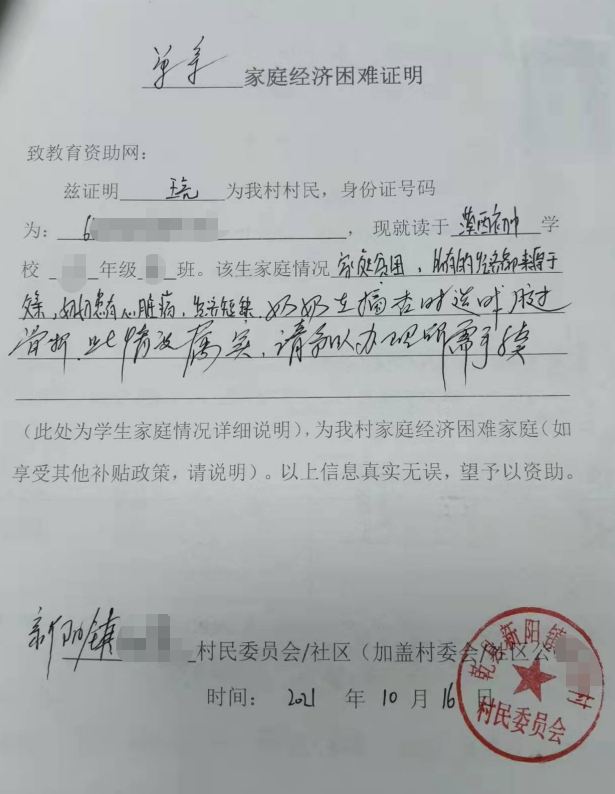 单亲 家庭经济困难证明
致教育资助网：
兹证明 为我村村民，身份证号码
为：6 ，现就读于 学
校 年级 班。该生家庭情况 家庭贫困，所有的经济都来源于
，奶奶患有心脏病，经济短缺，奶奶在摘杏时造成
骨折，此情况属实，请予以办理所需手续
（此处为学生家庭情况详细说明），为我村家庭经济困难家庭（如
享受其他补贴政策，请说明）。以上信息真实无误，望予以资助。
新阳镇 村民委员会/社区（加盖村委会/社区公
时间： 2021 年 10 月 16 日
乾县新阳镇 村
村民委员会